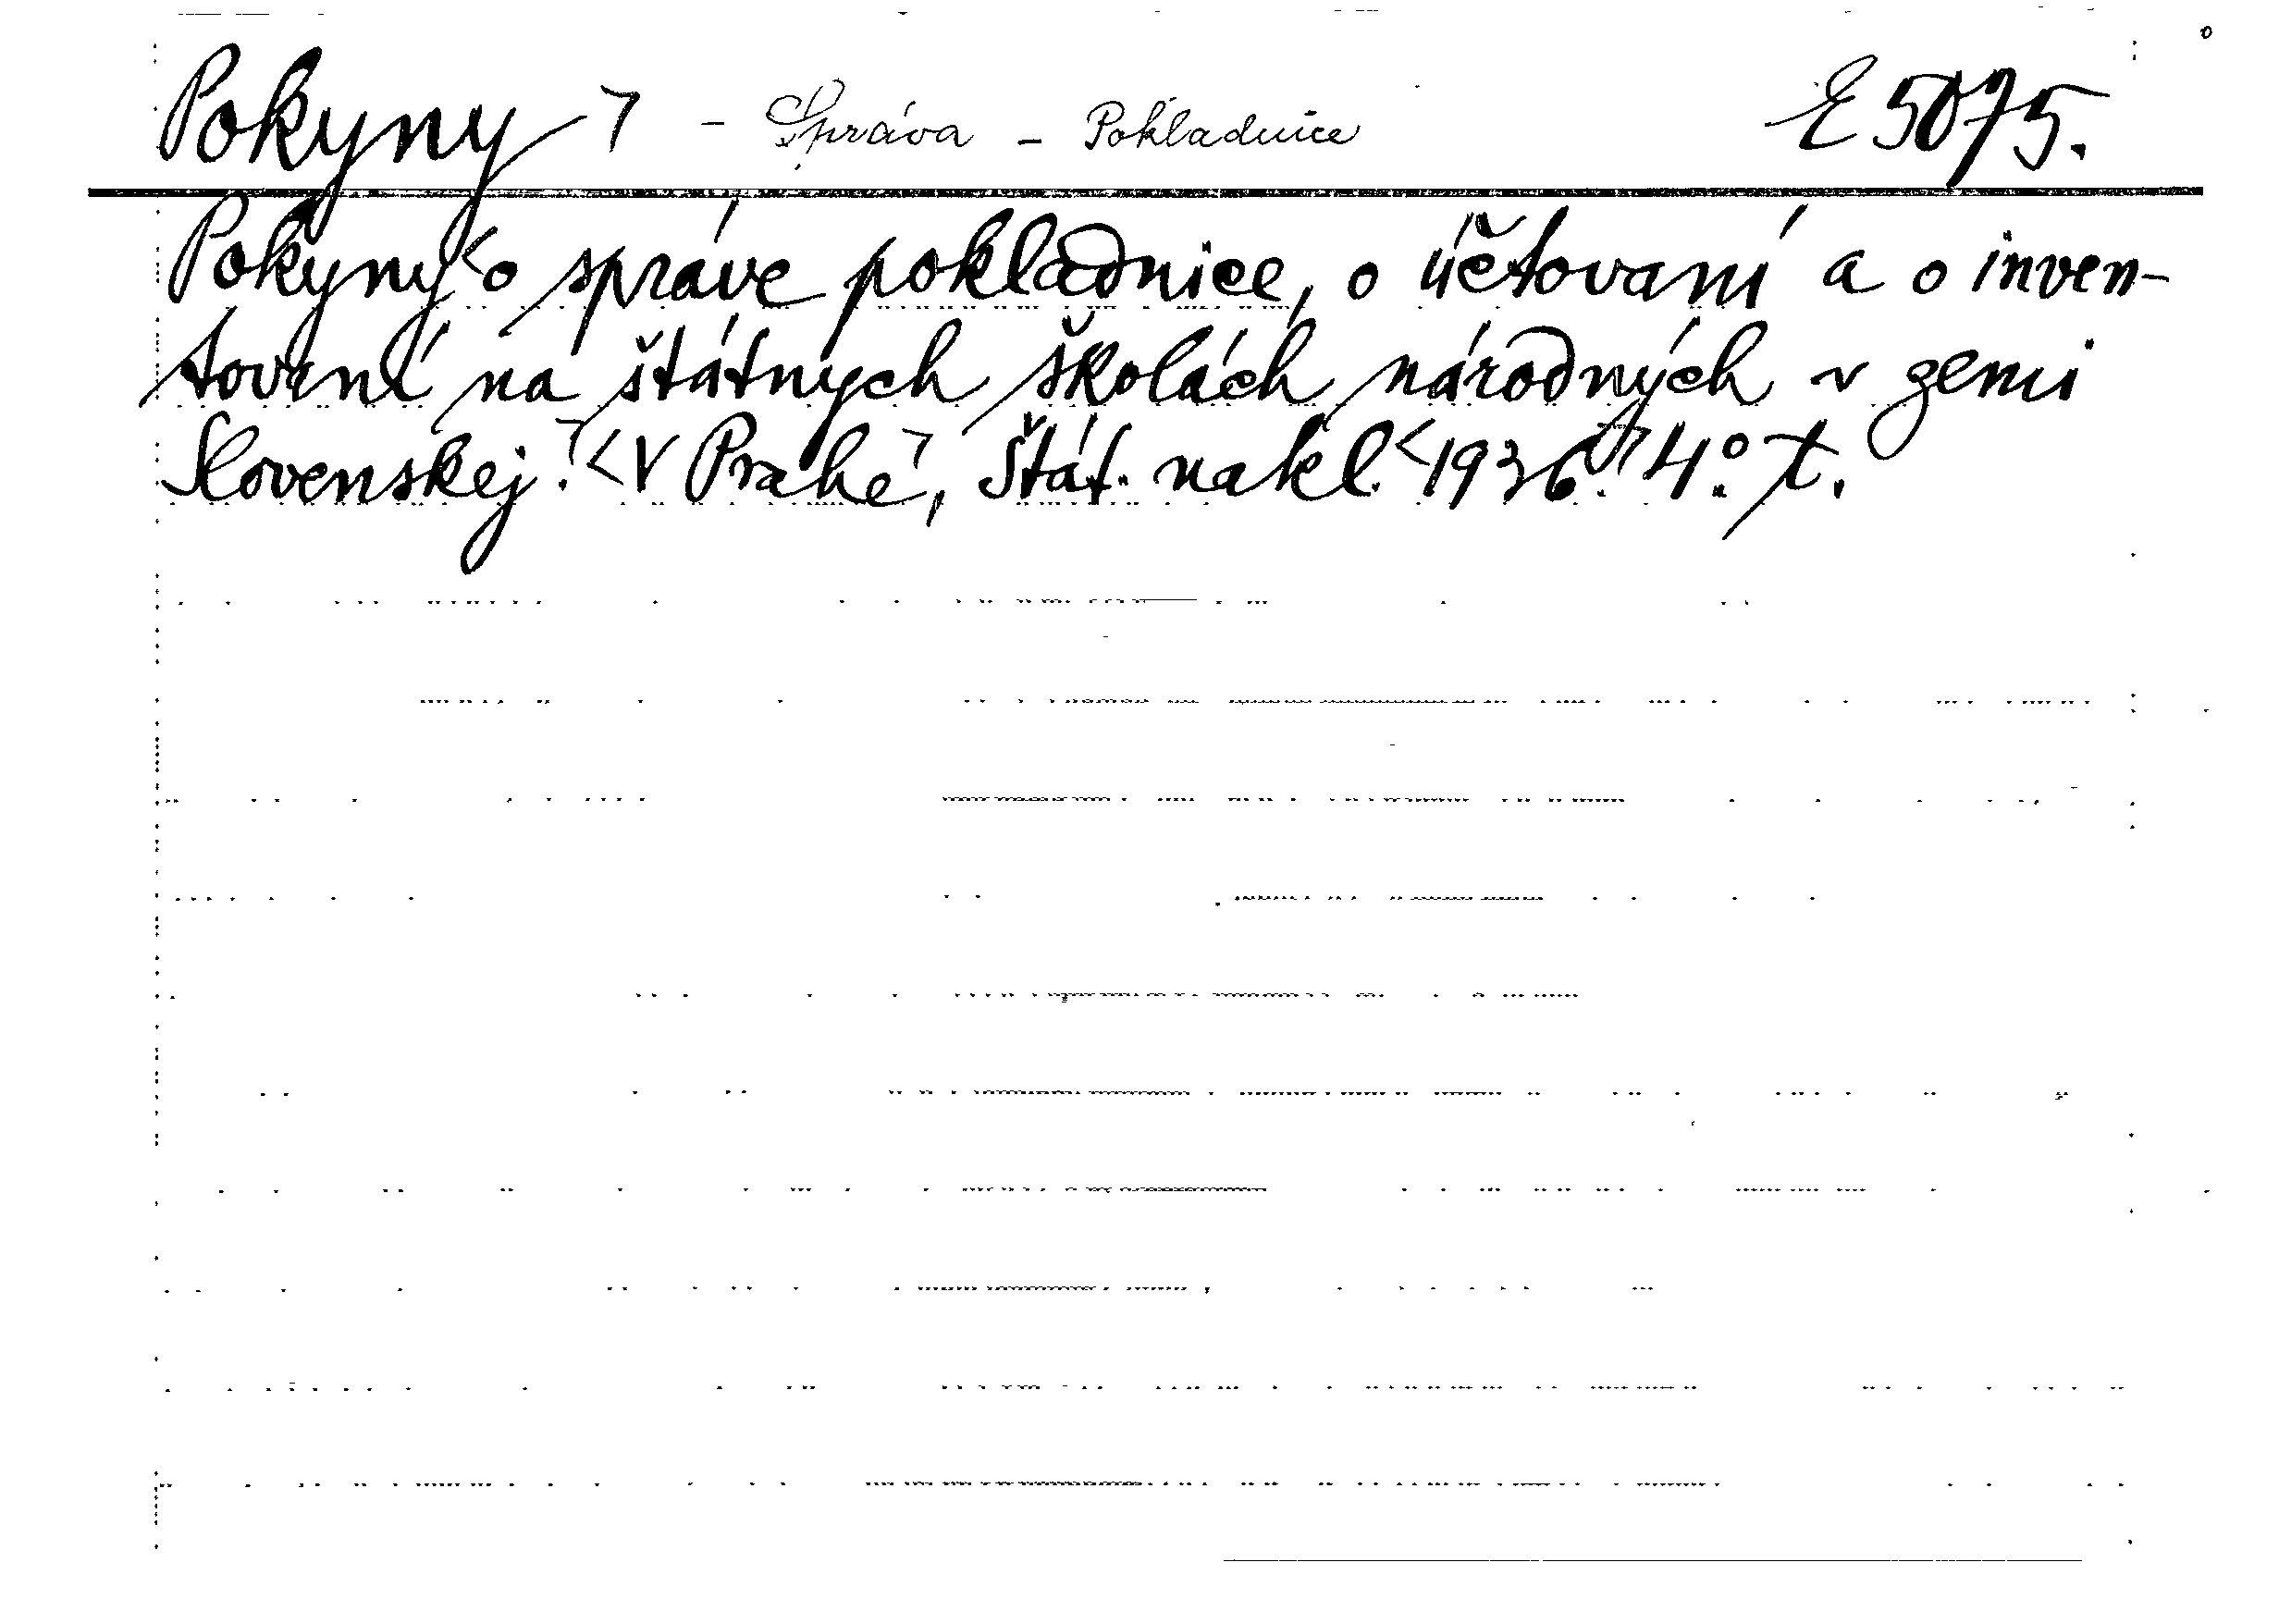 Pokyny ⌝ - Správa - Pokladnice E 5075.
Pokyny < o správe pokladnice, o účtovaní a o inven-
tovaní na štátnych školách národných v zemi
Slovenskej. ⌝ < V Prahe ⌝, Štát. nakl. < 1936. ⌝ 4°. t.